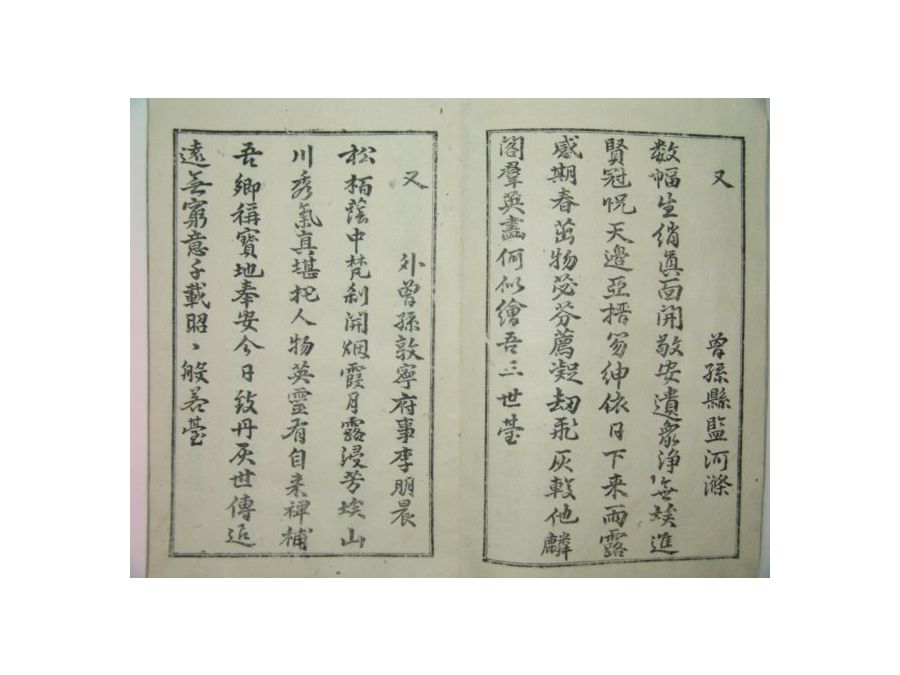 又
曾孫縣監河滌
数幅生綃眞面開敬安遺象淨無埃進
賢冠怳天邊亞搢笏紳依日下来雨露
感期春茁物苾芬薦凝劫飛灰較他麟
閣羣英畵何似繪吾三世䑓
又
外曾孫敦寧府事李朋晨
松栢蔭中梵刹開烟霞月露浸芳埃山
川秀氣真堪托人物英靈有自来裨補
吾鄉稱寶地奉安今日致丹灰世傳追
遠無窮意千載昭ヽ般若䑓